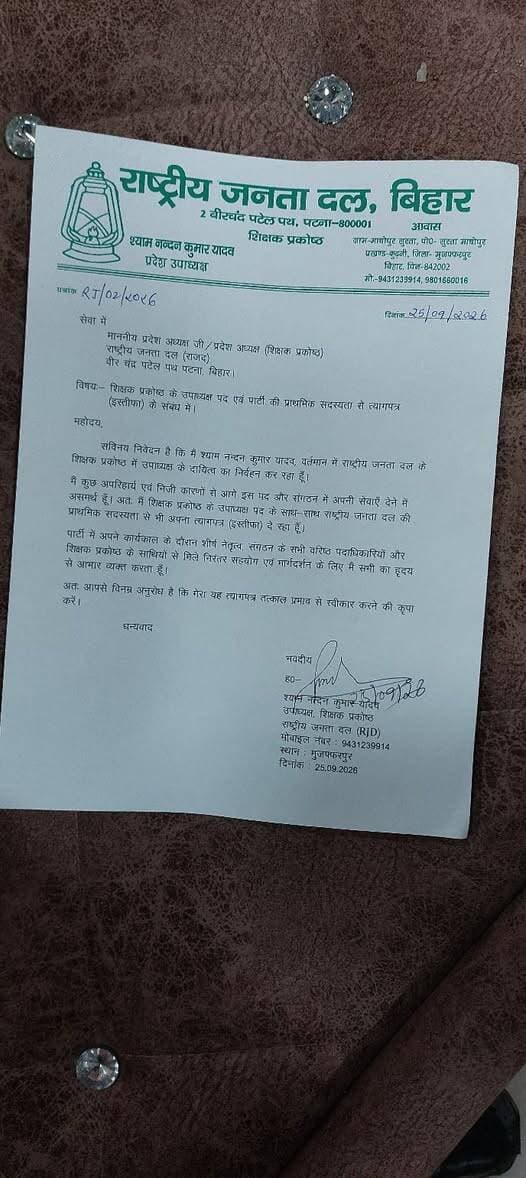 राष्ट्रीय जनता दल, बिहार
2 बीरचंद पटेल पथ, पटना-800001
शिक्षक प्रकोष्ठ
श्याम नन्दन कुमार यादव
प्रदेश उपाध्यक्ष
आवास
ग्राम-माधोपुर सुस्ता, पो0- सुस्ता माधोपुर
प्रखण्ड-कुढ़नी, जिला- मुजफ्फरपुर
बिहार, पिन-842002
मो.-9431239914, 9801660016
पत्रांक RJ/02/2026
दिनांक 25/09/2026
सेवा में
माननीय प्रदेश अध्यक्ष जी/प्रदेश अध्यक्ष (शिक्षक प्रकोष्ठ)
राष्ट्रीय जनता दल (राजद)
वीर चंद्र पटेल पथ पटना, बिहार।
विषयः- शिक्षक प्रकोष्ठ के उपाध्यक्ष पद एवं पार्टी की प्राथमिक सदस्यता से त्यागपत्र
(इस्तीफा) के संबंध में।
महोदय,
सविनय निवेदन है कि मैं श्याम नन्दन कुमार यादव, वर्तमान में राष्ट्रीय जनता दल के
शिक्षक प्रकोष्ठ में उपाध्यक्ष के दायित्व का निर्वहन कर रहा हूँ।
मैं कुछ अपरिहार्य एवं निजी कारणों से आगे इस पद और संगठन में अपनी सेवाएँ देने में
असमर्थ हूँ। अतः मैं शिक्षक प्रकोष्ठ के उपाध्यक्ष पद के साथ-साथ राष्ट्रीय जनता दल की
प्राथमिक सदस्यता से भी अपना त्यागपत्र (इस्तीफा) दे रहा हूँ।
पार्टी में अपने कार्यकाल के दौरान शीर्ष नेतृत्व, संगठन के सभी वरिष्ठ पदाधिकारियों और
शिक्षक प्रकोष्ठ के साथियों से मिले निरंतर सहयोग एवं मार्गदर्शन के लिए मैं सभी का हृदय
से आभार व्यक्त करता हूँ।
अतः आपसे विनम्र अनुरोध है कि मेरा यह त्यागपत्र तत्काल प्रभाव से स्वीकार करने की कृपा
करें।
धन्यवाद
भवदीय
ह0-
25/09/26
श्याम नन्दन कुमार यादव
उपाध्यक्ष, शिक्षक प्रकोष्ठ
राष्ट्रीय जनता दल (RJD)
मोबाइल नंबर : 9431239914
स्थान : मुजफ्फरपुर
दिनांक : 25.09.2026